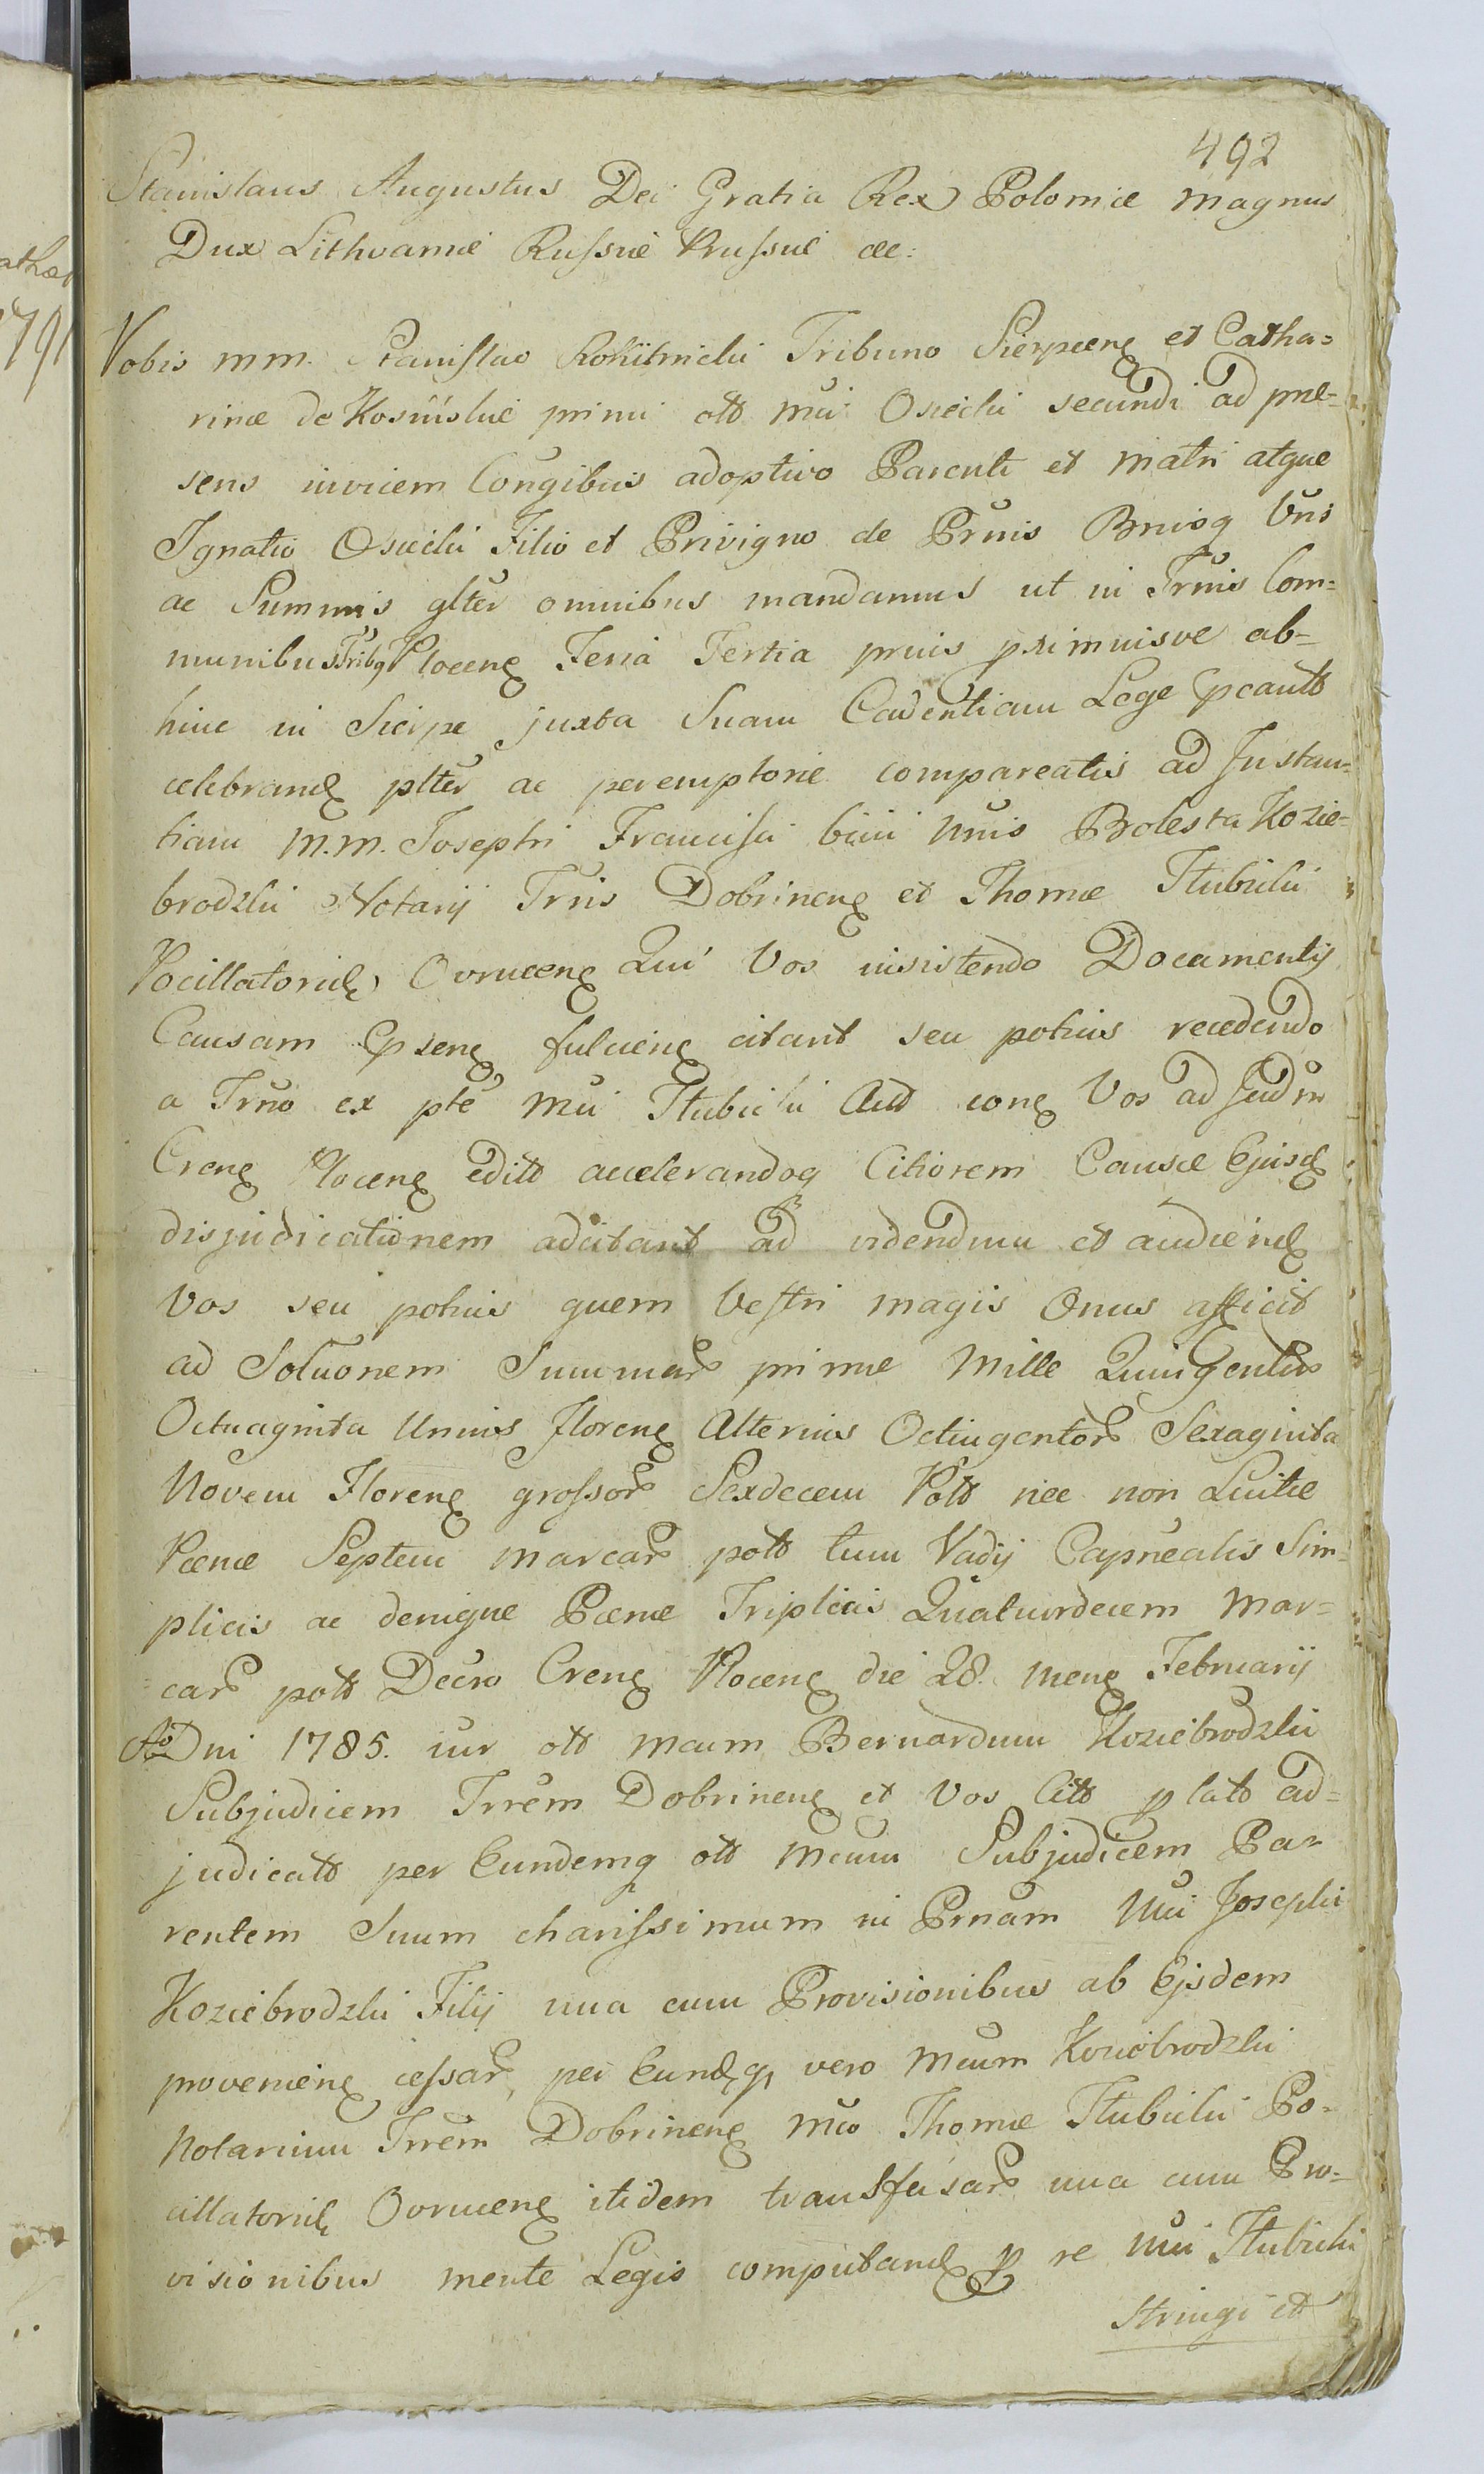 492
Stanislaus Augustus Dei Gratia Rex Poloniæ Magnus
Dux Lithvaniæ Russiæ Prussiæ &c:
Vobis mm. Stanislao Rokitnicki Tribuno Sierpcen̄ et Catha=
rinæ de primi ott mci Osiecki secundi ad præ=
sens invicem Congibus adoptivo Parenti et Matri atque
Ignatio Osiecki Filio et Privigno de Prnis Bnisq Vris
ac Summis glter omnibus mandamus ut in Trmis Com=
munibus Tribq Plocen Feria Tertia pruis primuisve ab=
hinc in Sierpc juxta Suam Cadentiam Lege pcautt
celebrand plter ac peremptorie compareatis ad Instan=
tiam M.M. Josephi Francisci bini Nnis Bolesta Kozie=
brodzki Notarij Trris Dobrinen et Thomæ Itubicki
Pocillatorid Ovrucen Qui Vos insistendo Documentis
Causam psen fulcien citant seu potius recedendo
a Trno ex pte Mci Itubicki Actt con Vos ad Judm
Cren Plocen editt accelerandoq Citiorem Causæ Ejusd
disjudicationem adcitant ad videndum et audiend
Vos seu potius quem Vestri magis Onus afficit
ad Solūonem Summar primæ Mille Quingentor
Octuaginta Unius floren Alterius Octingentor Sexaginta
Novem Floren grossor Sexdecem Poltt nec non Luitæ
Pænæ Septem marcar poltt tum Vadij Capnealis Sim=
plicis ac denique Pænæ Triplicis Quatuordecem Mar=
car poltt Decro Cren Plocen die 28. Men Februarij
Ao Dni 1785. inr ott Mcum Bernardum Koziebrodzki
Subjudicem Trrem Dobrinen et Vos Citt p latt ad=
judicatt per Eundemq ott Mcum Subjudicem Pa=
rentem Suum charissimum in Prnam Mci Josephi
Koziebrodzki Filij una cum Provisionibus ab Ejsdem
provenien cessar, per Eundq vero Mcum Koziebrodzki
Notarium Trrem Dobrinen Mco Thomæ Itubicki Po=
cillatorid Ovrucen itidem transfusar una cum Pro=
visionibus mente Legis computand p re Mci Itubicki
Stringi et